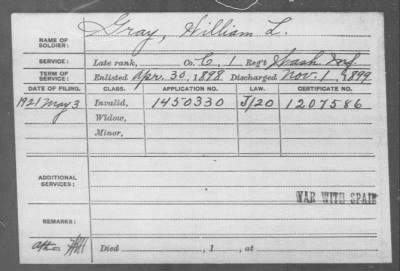 NAME OF SOLDIER: Gray, William L.
SERVICE: Late rank, Co. C, 1 Reg't Wash Inf.
TERM OF SERVICE: Enlisted Apr. 30, 1898, Discharged Nov. 1, 1899
DATE OF FILING. CLASS. APPLICATION NO. LAW. CERTIFICATE NO.
1921 May 3 Invalid, 1450330 J/20 1207586
Widow,
Minor,
ADDITIONAL SERVICES:
WAR WITH SPAIN
REMARKS:
Died , 1 , at